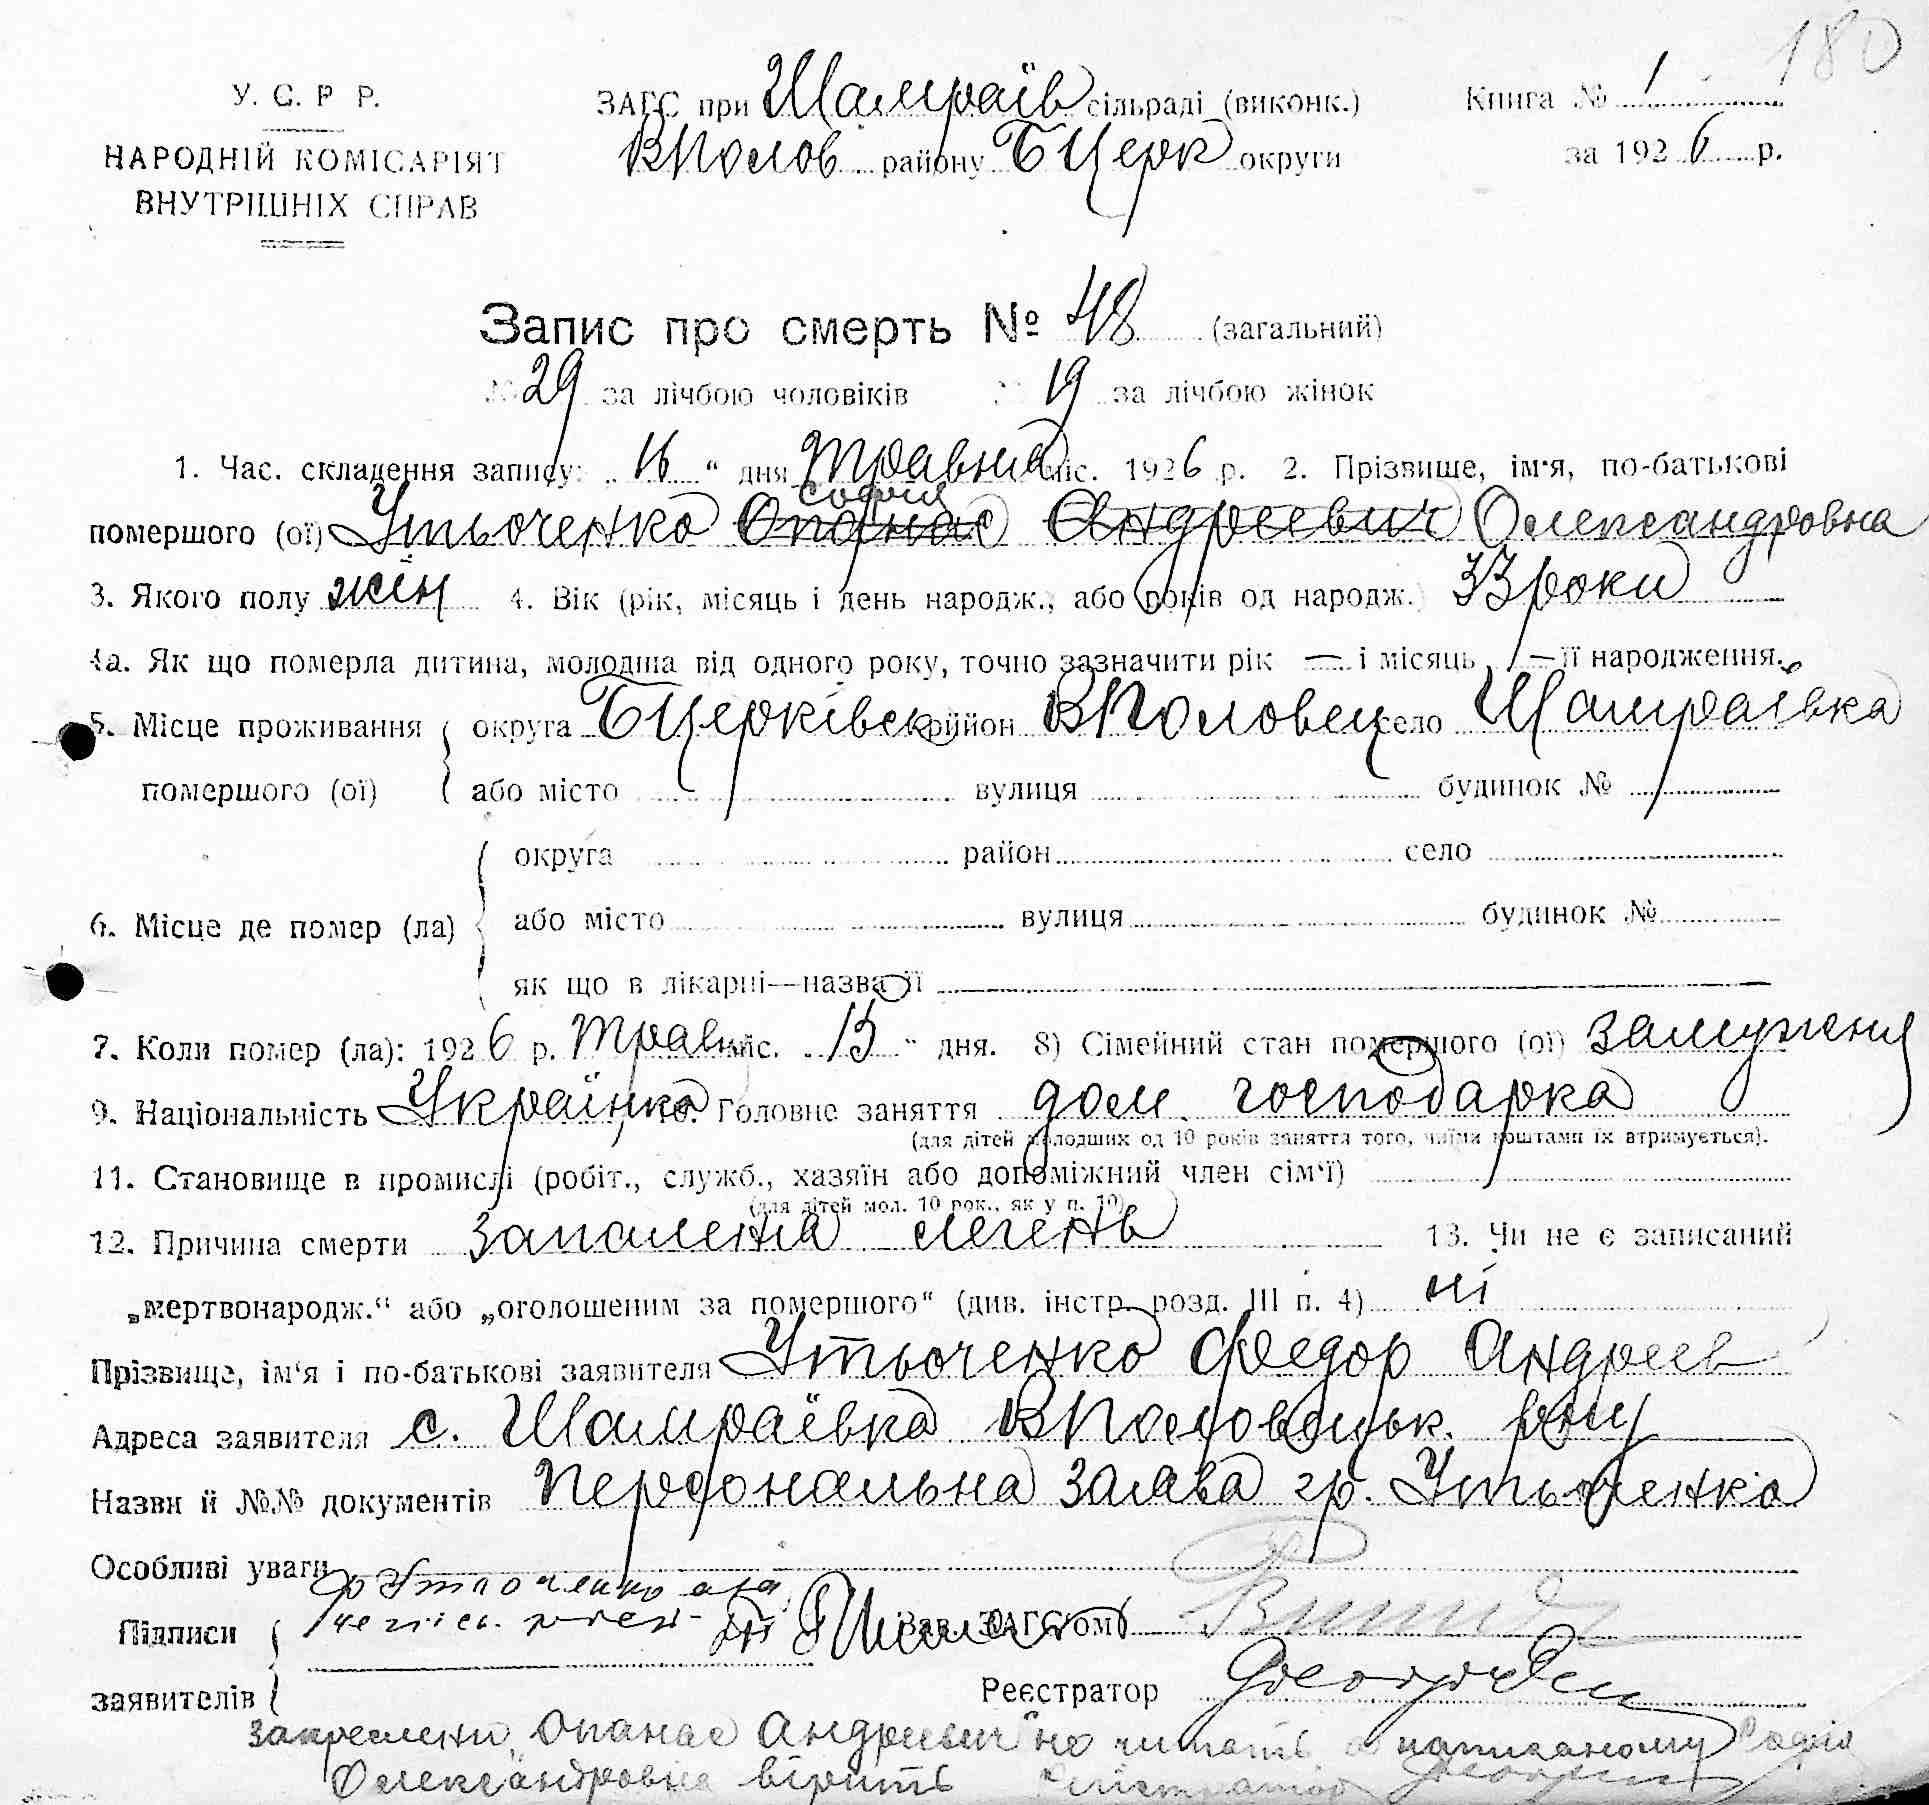 180
У. С. Р Р.
НАРОДНІЙ КОМІСАРІЯТ
ВНУТРІШНІХ СПРАВ
ЗАГС при Шамраїв сільраді (виконк.)
ВПолов району БЦерк округи
Книга № 1
за 1926 р.
Запис про смерть № 48 (загальний)
29 за лічбою чоловіків № 19 за лічбою жінок
1. Час. складення запису: 16 “ дня Травня міс. 1926 р. 2. Прізвище, ім'я, по-батькові
Софія
помершого (ої) Утьоченко Опанас Андреевич Олександровна
3. Якого полу жін 4. Вік (рік, місяць і день народж., або років од народж.) 33 роки
4а. Як що померла дитина, молодша від одного року, точно зазначити рік — і місяць — її народження.
5. Місце проживання округа БЦерківськ район ВПоловец село Шамраївка
помершого (ої) або місто вулиця будинок №
округа район село
6. Місце де помер (ла) або місто вулиця будинок №
як що в лікарні—назва її
7. Коли помер (ла): 1926 р. Травн міс. 15 “ дня. 8) Сімейний стан помершого (ої) замужня
9. Національність Українка 10. Головне заняття дом. господарка
(для дітей молодших од 10 років заняття того, чиїми коштами їх втримується).
11. Становище в промислі (робіт., служб., хазяїн або допоміжний член сім'ї)
(для дітей мол. 10 рок., як у п. 10)
12. Причина смерти запалення легень 13. Чи не є записаний
„мертвонародж.“ або „оголошеним за помершого“ (див. інстр. розд. III п. 4) ні
Прізвище, ім'я і по-батькові заявителя Утьоченко Федор Андреев
Адреса заявителя с. Шамраївка ВПоловецьк. рну
Назви й №№ документів Персональна заява гр. Утьоченка
Особливі уваги
Підписи Зав. ЗАГС'ом
заявителів Реєстратор
закреслени „Опанас Андреевич“ не читать а написаному Софія
Олександровна вірить